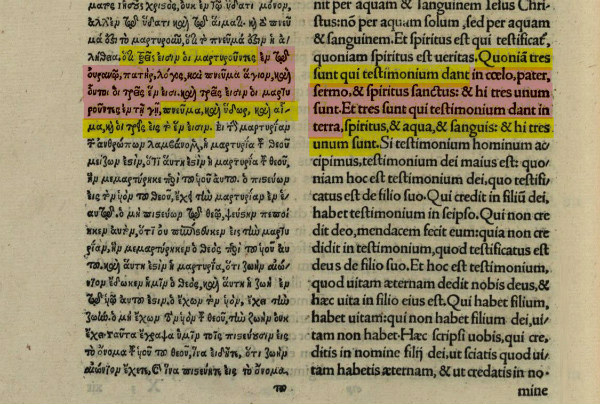 ἰησοῦς χριστός, οὐκ ἐν τῷ ὕδατι μόνον,
ἀλλ' ἐν τῷ ὕδατι καὶ τῷ αἵματι. καὶ τὸ πνεῦ
μά ἐστι τὸ μαρτυροῦν, ὅτι τὸ πνεῦμά ἐστιν ἡ ἀ
λήθεια. ὅτι τρεῖς εἰσιν οἱ μαρτυροῦντες ἐν τῷ
οὐρανῷ, πατήρ, λόγος, καὶ πνεῦμα ἅγιον, καὶ
οὗτοι οἱ τρεῖς ἕν εἰσι. καὶ τρεῖς εἰσιν οἱ μαρτυ
ροῦντες ἐν τῇ γῇ, πνεῦμα, καὶ ὕδωρ, καὶ αἷ
μα, καὶ οἱ τρεῖς εἰς τὸ ἕν εἰσιν. Εἰ τὴν μαρτυρίαν
τῶν ἀνθρώπων λαμβάνομεν, ἡ μαρτυρία τοῦ θεοῦ
μείζων ἐστίν, ὅτι αὕτη ἐστὶν ἡ μαρτυρία τοῦ θεοῦ,
ἣν μεμαρτύρηκε περὶ τοῦ υἱοῦ αὐτοῦ. ὁ πιστεύων
εἰς τὸν υἱὸν τοῦ θεοῦ, ἔχει τὴν μαρτυρίαν ἐν ἑ
αυτῷ. ὁ μὴ πιστεύων τῷ θεῷ, ψεύστην πεποί
ηκεν αὐτόν, ὅτι οὐ πεπίστευκεν εἰς τὴν μαρτυ
ρίαν, ἣν μεμαρτύρηκεν ὁ θεὸς περὶ τοῦ υἱοῦ αὐ
τοῦ. καὶ αὕτη ἐστὶν ἡ μαρτυρία, ὅτι ζωὴν αἰώ
νιον ἔδωκεν ἡμῖν ὁ θεός, καὶ αὕτη ἡ ζωὴ ἐν
τῷ υἱῷ αὐτοῦ ἐστιν. ὁ ἔχων τὸν υἱὸν, ἔχει τὴν
ζωήν. ὁ μὴ ἔχων τὸν υἱὸν τοῦ θεοῦ, τὴν ζωὴν οὐκ
ἔχει. ταῦτα ἔγραψα ὑμῖν τοῖς πιστεύουσιν εἰς
τὸ ὄνομα τοῦ υἱοῦ τοῦ θεοῦ, ἵνα εἰδῆτε, ὅτι ζωὴν
αἰώνιον ἔχετε, καὶ ἵνα πιστεύητε εἰς τὸ ὄνομα.
του
nit per aquam & sanguinem Iesus Chri-
stus: nõ per aquam solum, sed per aquam
& sanguinem. Et spiritus est qui testificat᷒,
quoniam spiritus est ueritas. Quoniã tres
sunt qui testimonium dant in cœlo, pater,
sermo, & spiritus sanctus: & hi tres unum
sunt. Et tres sunt qui testimonium dant in
terra, spiritus, & aqua, & sanguis: & hi tres
unum sunt. Si testimonium hominum ac
cipimus, testimonium dei maius est: quo-
niam hoc est testimonium dei, quo testifi-
catus est de filio suo. Qui credit in filiũ dei,
habet testimonium in seipso. Qui non cre
dit deo, mendacem fecit eum: quia non cre
didit in testimonium, quod testificatus est
deus de filio suo. Et hoc est testimonium,
quod uitam æternam dedit nobis deus, &
hæc uita in filio eius est. Qui habet filium,
habet uitam: qui non habet filium dei, ui-
tam non habet. Hæc scripsi uobis, qui cre-
ditis in nomine filij dei, ut sciatis quod ui-
tam habetis æternam, & ut credatis in no-
mine